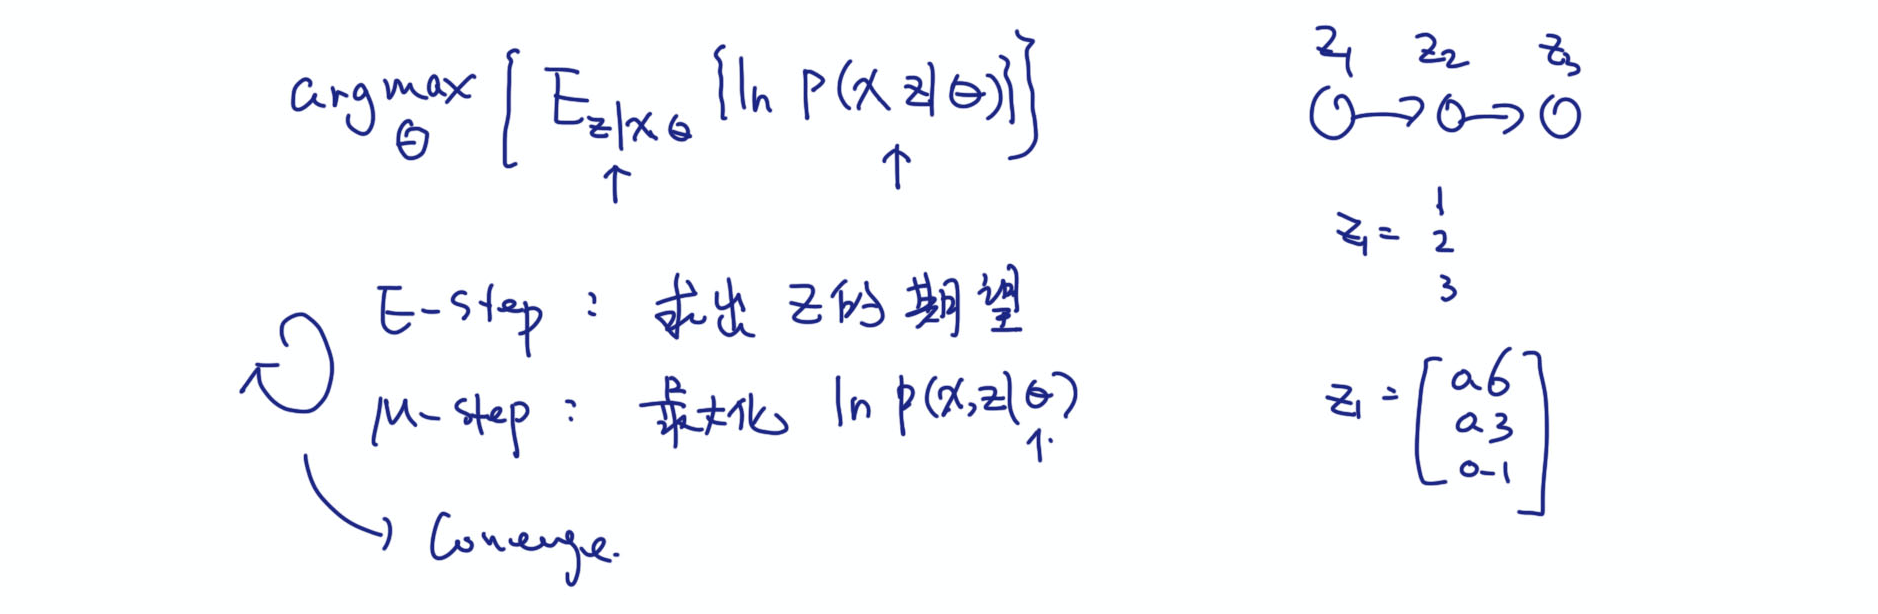 argmax θ [ E z|xθ {ln p(x z|θ)} ]
↑ ↑
E-step : 求出 z的期望
M-step : 最大化 ln p(x,z|θ)
↑
Converge.
z1 z2 z3
z1 = 1 2 3
z1 = [ 0.6 0.3 0.1 ]